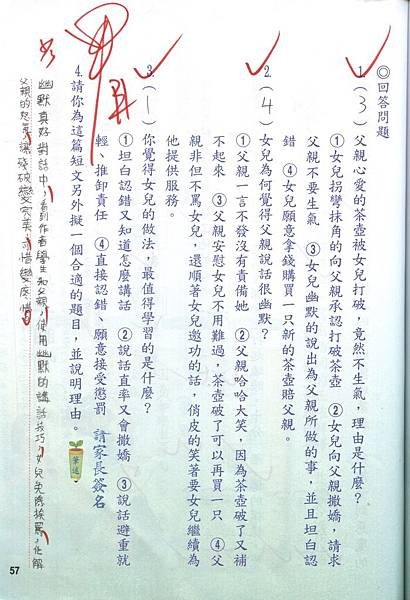 ◎回答問題
1.(3)父親心愛的茶壺被女兒打破,竟然不生氣,理由是什麼?
①女兒拐彎抹角的向父親承認打破茶壺 ②女兒向父親撒嬌,請求
父親不要生氣 ③女兒幽默的說出為父親所做的事,並且坦白認
錯 ④女兒願意拿錢購買一只新的茶壺賠父親。
2.(4)女兒為何覺得父親說話很幽默?
①父親一言不發沒有責備她 ②父親哈哈大笑,因為茶壺破了又補
不起來 ③父親安慰女兒不用難過,茶壺破了可以再買一只 ④父
親非但不罵女兒,還順著女兒邀功的話,俏皮的笑著要女兒繼續為
他提供服務。
3.(1)你覺得女兒的做法,最值得學習的是什麼?
①坦白認錯又知道怎麼講話 ②說話直率又會撒嬌 ③說話避重就
輕、推卸責任 ④直接認錯、願意接受懲罰 請家長簽名
4.請你為這篇短文另外擬一個合適的題目,並說明理由。
筆述
幽默真好 對話中,看到作者學生和父親,使用幽默的講話技巧,女兒免除挨罵,化解
父親的怒氣,讓殘破變完美,可惜變疼惜
57